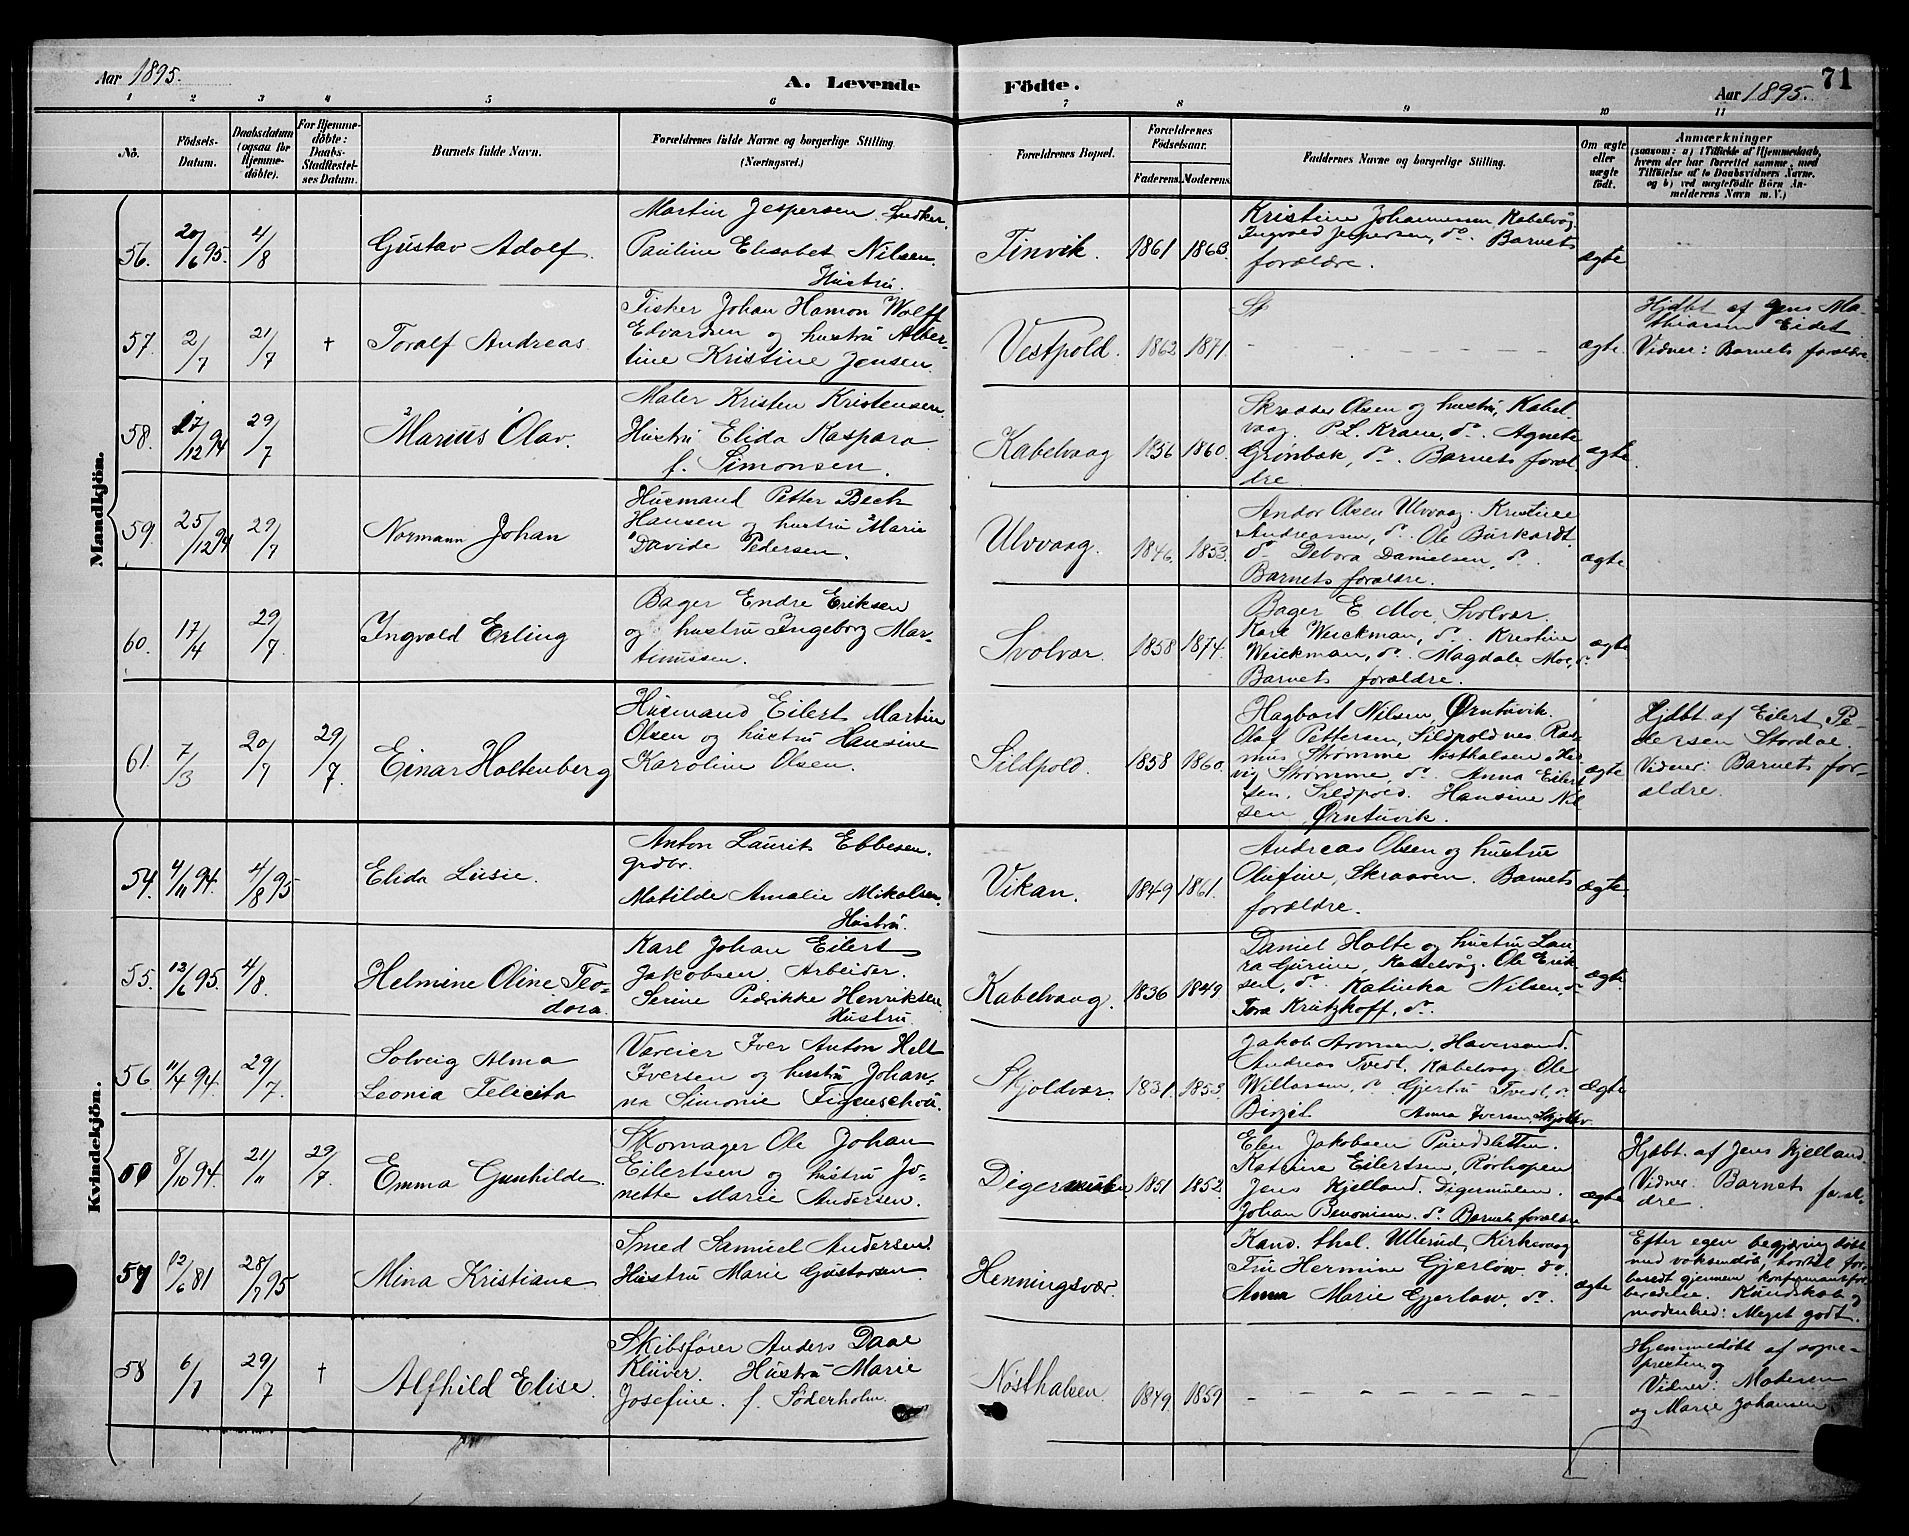 Aar 1895.
A. Levende
Födte.
Aar 1895.
71
1 2 3 4 5 6 7 8 9 10 11
No.
Födsels-
Datum.
Daabsdatum
(ogsaa for
Hjemme-
døbte).
For Hjemme-
döbte:
Daabs-
Stadfæstel-
ses Datum.
Barnets fulde Navn.
Forældrenes fulde Navne og borgerlige Stilling
(Næringsvei.)
Forældrenes Bopæl.
Forældrenes
Födselsaar.
Faderens. Moderens.
Faddernes Navne og borgerlige Stilling.
Om ægte
eller
uægte
født.
Anmærkninger
(saasom: a) i Tilfælde af Hjemmedaab,
hvem der har forrettet samme, med
Tilföielse af to Daabsvidners Navne.
og b) ved uægtefödte Börn An-
melderens Navn m. V.)
Mandkjön.
56. 20/6 95. 4/8 Gustav Adolf.
Martin Jespersen. Snedker.
Pauline Elisabet Nilsen.
Hustru.
Finvik. 1861 1863.
Kristine Johannessen, Kabelvåg.
Ingvald Jespersen, do. Barnets
forældre.
ægte
57. 2/7 21/7 † Toralf Andreas.
Fisker Johan Hamon Wolff
Edvardsen og hustru Alber-
tine Kristine Jensen.
Vestpold. 1862 1871.
ægte.
Hjdbt af Jens Ma-
thiassen Eidet
Vidner: Barnets forældre.
58. 17/12 94 29/7 Marius Olav.
Maler Kristen Kristensen.
Hustru Elida Kaspara
f. Simonsen.
Kabelvaag 1856 1860.
Skrædder Olsen og hustru, Kabel-
vaag. P. L. Krane, do. Agnete
Grönbæk, do. Barnets foræl-
dre.
ægte.
59. 25/12 94 29/7 Normann Johan
Husmand Petter Bech
Hansen og hustru Marie
Davide Pedersen.
Ulvvaag. 1846. 1853.
Andor Olsen Ulvvaag. Kristine
Andreassen, do. Ole Burkardt.
do. Debora Danielsen, do.
Barnets forældre.
ægte.
60. 17/4 29/7. Ingvald Erling
Bager Endre Eriksen
og hustru Ingeborg Mar-
tinussen.
Svolvær. 1858 1874.
Bager E. Moe, Svolvær.
Karl Weickman, do. Kristine
Weickman, do. Magdale Moe, do.
Barnets forældre.
ægte.
61. 7/3 20/7 29/7. Einar Holtenberg
Husmand Eilert Martin
Olsen og hustru Hansine
Karoline Olsen.
Sildpold. 1858 1860.
Hagbart Nilsen, Ørntuvik.
Olaf Pettersen, Sildpoldnes Ras-
mus Strømme Nøsthalsen
Strømme, do. Anna Eilert-
sen, Sildpold. Hansine Nil-
sen, Ørntuvik.
ægte
Hjdbt. af Eilert Pe-
dersen Stordal.
Vidner: Barnets for-
ældre.
Kvindekjön.
54. 4/11 94. 4/8 95 Elida Lusie.
Anton Laurits Ebbesen.
grdbr.
Matilde Amalie Mikalsen.
Hustru.
Vikan. 1849 1861.
Andreas Olsen og hustru
Olufine, Skraaven. Barnets
forældre.
ægte.
55. 12/6 95. 4/8. Helmine Oline Teo-
dora.
Karl Johan Eilert
Jakobsen. Arbeider.
Serine Pedrikke Henriksen
Hustru.
Kabelvaag. 1836 1849
Daniel Holte og hustru Lau-
ra Gurine, Kabelvåg. Ole Erik-
sen, do. Katinka Nilsen, do
Tora Krutzkoff, do.
ægte.
56. 11/4 94. 29/7. Solveig Alma
Leonia Felicita
Væreier Iver Anton Hell
Iversen og hustru Johan-
na Simonie Figenschou.
Skjoldvær. 1831. 1853.
Jakob Aronsen, Haversand.
Andreas Tvedt, Kabelvaag. Ole
Willassen, do. Gjertru Tvedt, do.
Anna Iversen, Skjoldv.
ægte
8/10 94. 21/11 29/7. Emma Gunhilde.
Skomager Ole Johan
Eilertsen og hustru Jo-
nette Marie Andersen.
Digermulen 1851 1852.
Elen Jakobsen Pundsletten.
Katrine Eilertsen, Rørhopen
Jens Kjelland. Digermulen.
Johan Benonisen. do. Barnets forældre
ægte
Hjdbt. af Jens Kjelland.
Vidner: Barnets foræl-
dre.
57 12/6 81 28/7 95 Mina Kristiane
Smed Samuel Andersen.
Hustru Marie Gustavsen
Henningsvær.
Kand. thol. Ullerud, Kirkevaag
Fru Hermine Gjerløw. do.
Anna Marie Gjerløw, do.
ægte
Efter egen begjæring døbt
med voksendåb, hvortil for-
beredt gjennem konfirmantfor-
beredelse. Kundskab og
modenhed: Meget godt.
58 6/7 29/7 † Alfhild Elise.
Skibsfører Anders Daae
Klüver. Hustru Marie
Josefine. f. Söderholm.
Nøsthalsen 1849. 1859
Hjemmedöbt af sogne-
presten
Vidner: Moderen
og Marie Johansen